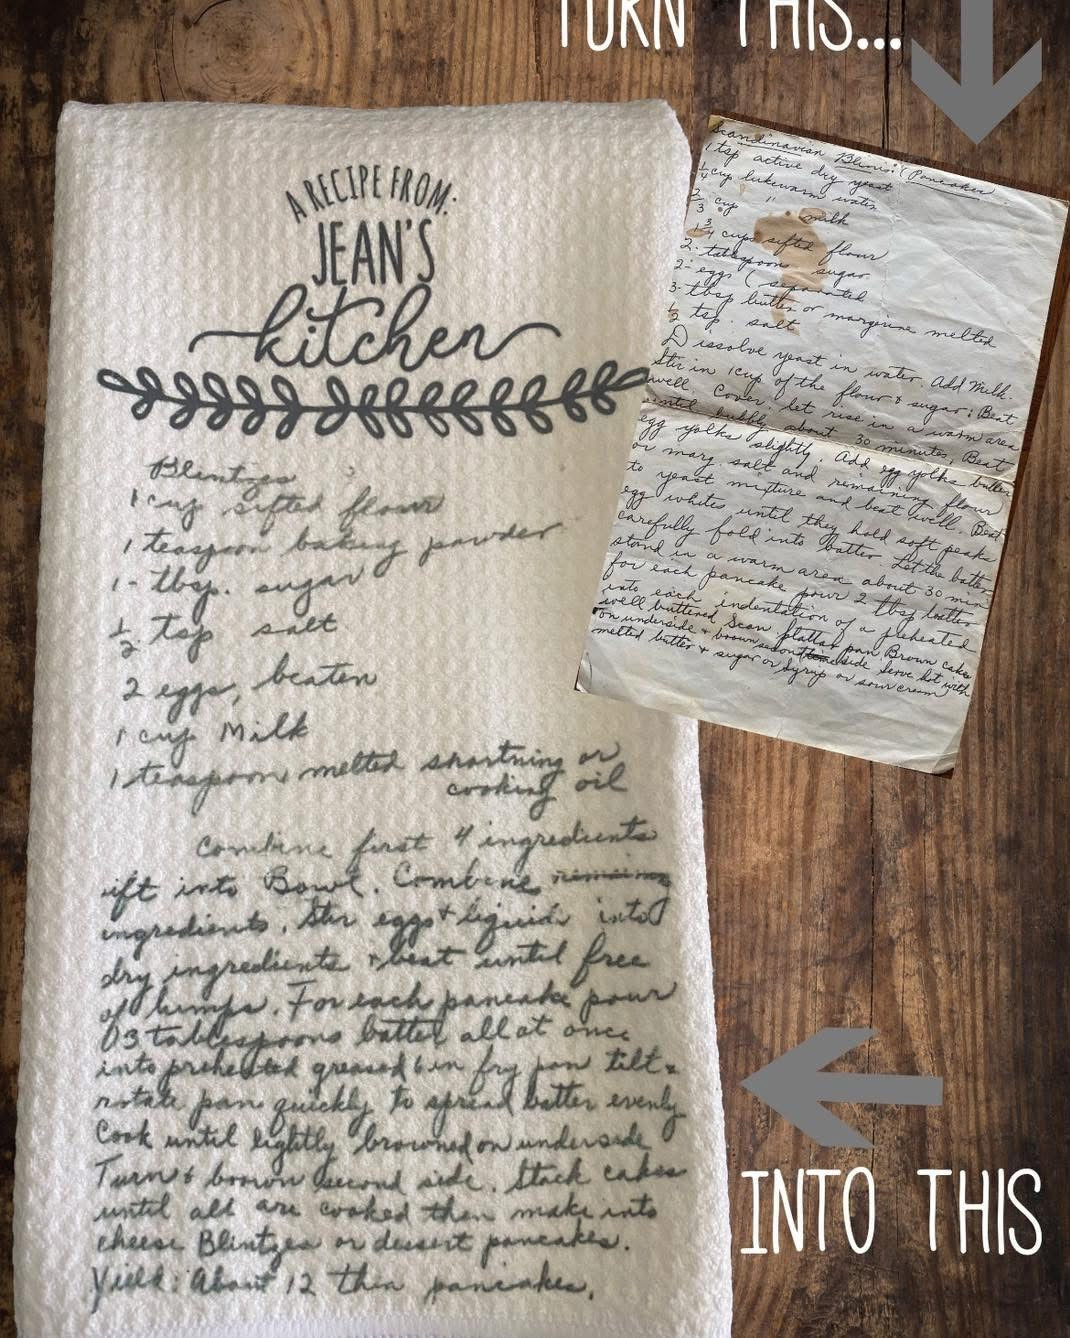 TURN THIS...
A RECIPE FROM:
JEAN'S
kitchen
Blintzes
1 cup sifted flour
1 teaspoon baking powder
1- tbsp. sugar
1/2 tsp salt
2 eggs, beaten
1 cup Milk
1 teaspoon melted shortning or
cooking oil
Combine first 4 ingredients
ift into Bowl. Combine
ingredients. Stir eggs & liquid into
dry ingredients & beat until free
of lumps. For each pancake pour
03 tablespoons batter all at once
into preheated greased 6 in fry pan tilt &
rotate pan quickly to spread batter evenly
Cook until lightly browned on underside
Turn & brown second side. Stack cakes
until all are cooked then make into
cheese Blintzes or dessert pancakes.
Yield: About 12 thin pancakes.
Scandinavian Blini: (Pancakes)
1 tsp active dry yeast
1/4 cup lukewarm water
2/3 cup " milk
1 3/4 cups sifted flour
2- tablespoon sugar
2- eggs (separated
3- tbsp butter or margerine melted
1/2 tsp. salt
Dissolve yeast in water. Add milk.
Stir in 1 cup of the flour & sugar; Beat
well Cover, let rise in a warm area
until bubbly about 30 minutes. Beat
egg yolks slightly. Add egg yolks butter
or marg. salt and remaining flour
to yeast mixture and beat well. Beat
egg whites until they hold soft peaks
carefully fold into batter Let the batter
stand in a warm area about 30 min
for each pancake pour 2 tbsp batter
into each indentation of a preheated
well buttered Scan plattar pan. Brown cakes
on underside & brown second side Serve hot with
melted butter & sugar or syrup or sour cream
INTO THIS